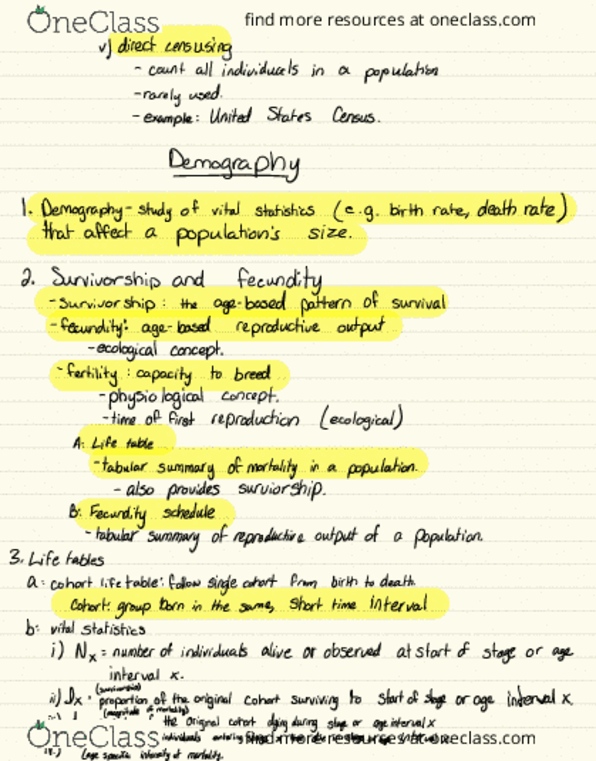 OneClass find more resources at oneclass.com
v) direct censusing
- count all individuals in a population
- rarely used.
- example: United States Census.
Demography
1. Demography - study of vital statistics (e.g. birth rate, death rate)
that affect a population's size.
2. Survivorship and fecundity
- survivorship: the age-based pattern of survival
- fecundity: age-based reproductive output
- ecological concept.
- fertility: capacity to breed
- physiological concept.
- time of first reproduction (ecological)
A: Life table
- tabular summary of mortality in a population.
- also provides surviorship.
B: Fecundity schedule
- tabular summary of reproductive output of a population.
3. Life tables
a: cohort life table: follow single cohort from birth to death.
Cohort: group born in the same, short time interval
b: vital statistics
i) Nx = number of individuals alive or observed at start of stage or age
interval x.
(survivorship)
ii) lx = proportion of the original cohort surviving to start of stage or age interval x.
(magnitude of mortality)
the original cohort dying during stage or age interval x
OneClass find more resources at oneclass.com
individuals entering
(age specific intensity of mortality.